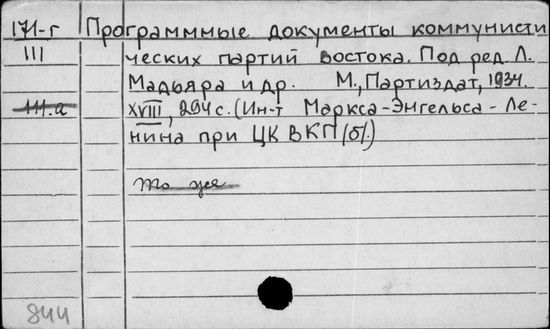 171-г Программные документы коммунисти
III ческих партий востока. Под ред. Л.
Мадьяра и др. М., Партиздат, 1934.
111.а XVIII, 294 с. (Ин-т Маркса-Энгельса-Ле-
нина при ЦК ВКП(б).)
То же
844